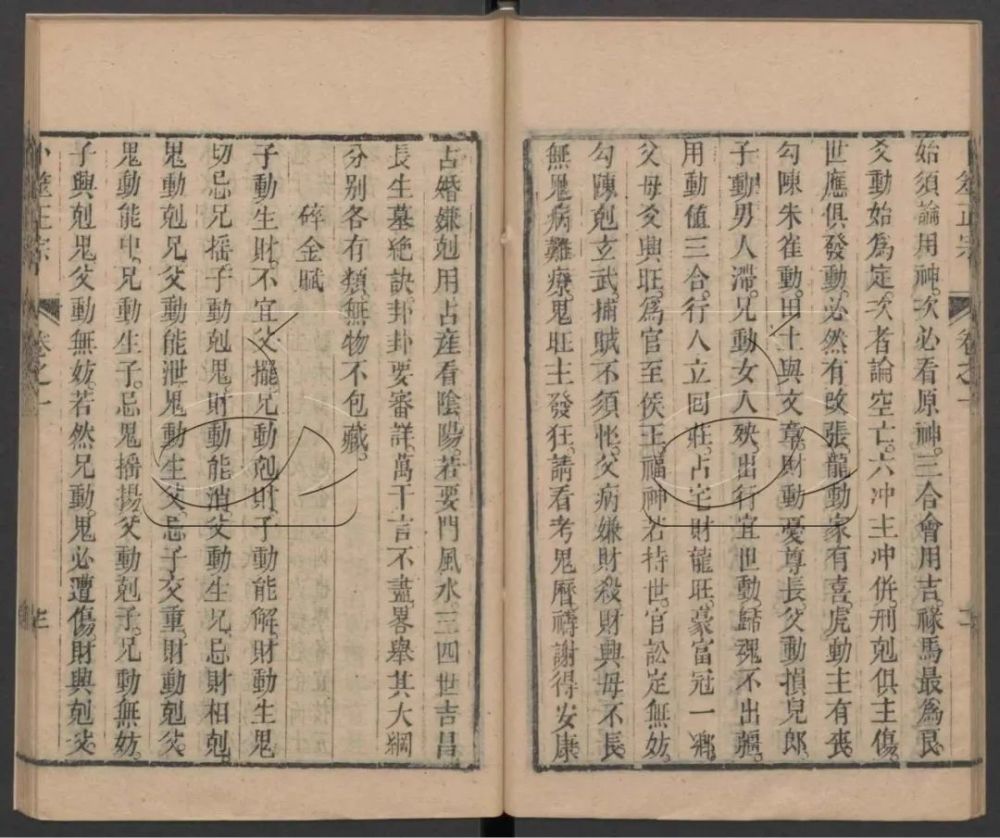 始須論用神。次必看原神。三合會用吉。祿馬最為良。
爻動始為定。次者論空亡。六冲主冲併。刑剋俱主傷。
世應俱發動。必然有改張。龍動家有喜。虎動主有喪。
勾陳朱雀動。田土與文章。財動憂尊長。父動損兒郎。
子動男人滯。兄動女人殃。出行宜世動。歸魂不出疆。
用動値三合。行人立囘莊。占宅財龍旺。豪富冠一鄉。
父母爻興旺。為官至侯王。福神若持世。官訟定無妨。
勾陳剋玄武。捕賊不須忙。父病嫌財殺。財興母不長。
無鬼病難療。鬼旺主發狂。請看考鬼曆。禱謝得安康
占婚嫌剋用。占産看陰陽。若要問風水。三四世吉昌
長生墓絶訣。卦卦要審詳。萬千言不盡。畧舉其大綱
分別各有類。無物不包藏。
碎金賦
子動生財。不宜父擺。兄動剋財。子動能解。財動生鬼
切忌兄搖。子動剋鬼。財動能消。父動生兄。忌財相剋。
鬼動剋兄。父動能泄。鬼動生父。忌子交重。財動剋父。
鬼動能中。兄動生子。忌鬼搖揚。父動剋子。兄動無妨。
子興剋鬼。父動無妨。若然兄動。鬼必遭傷。財興剋父。
卜筮正宗 卷之一 三